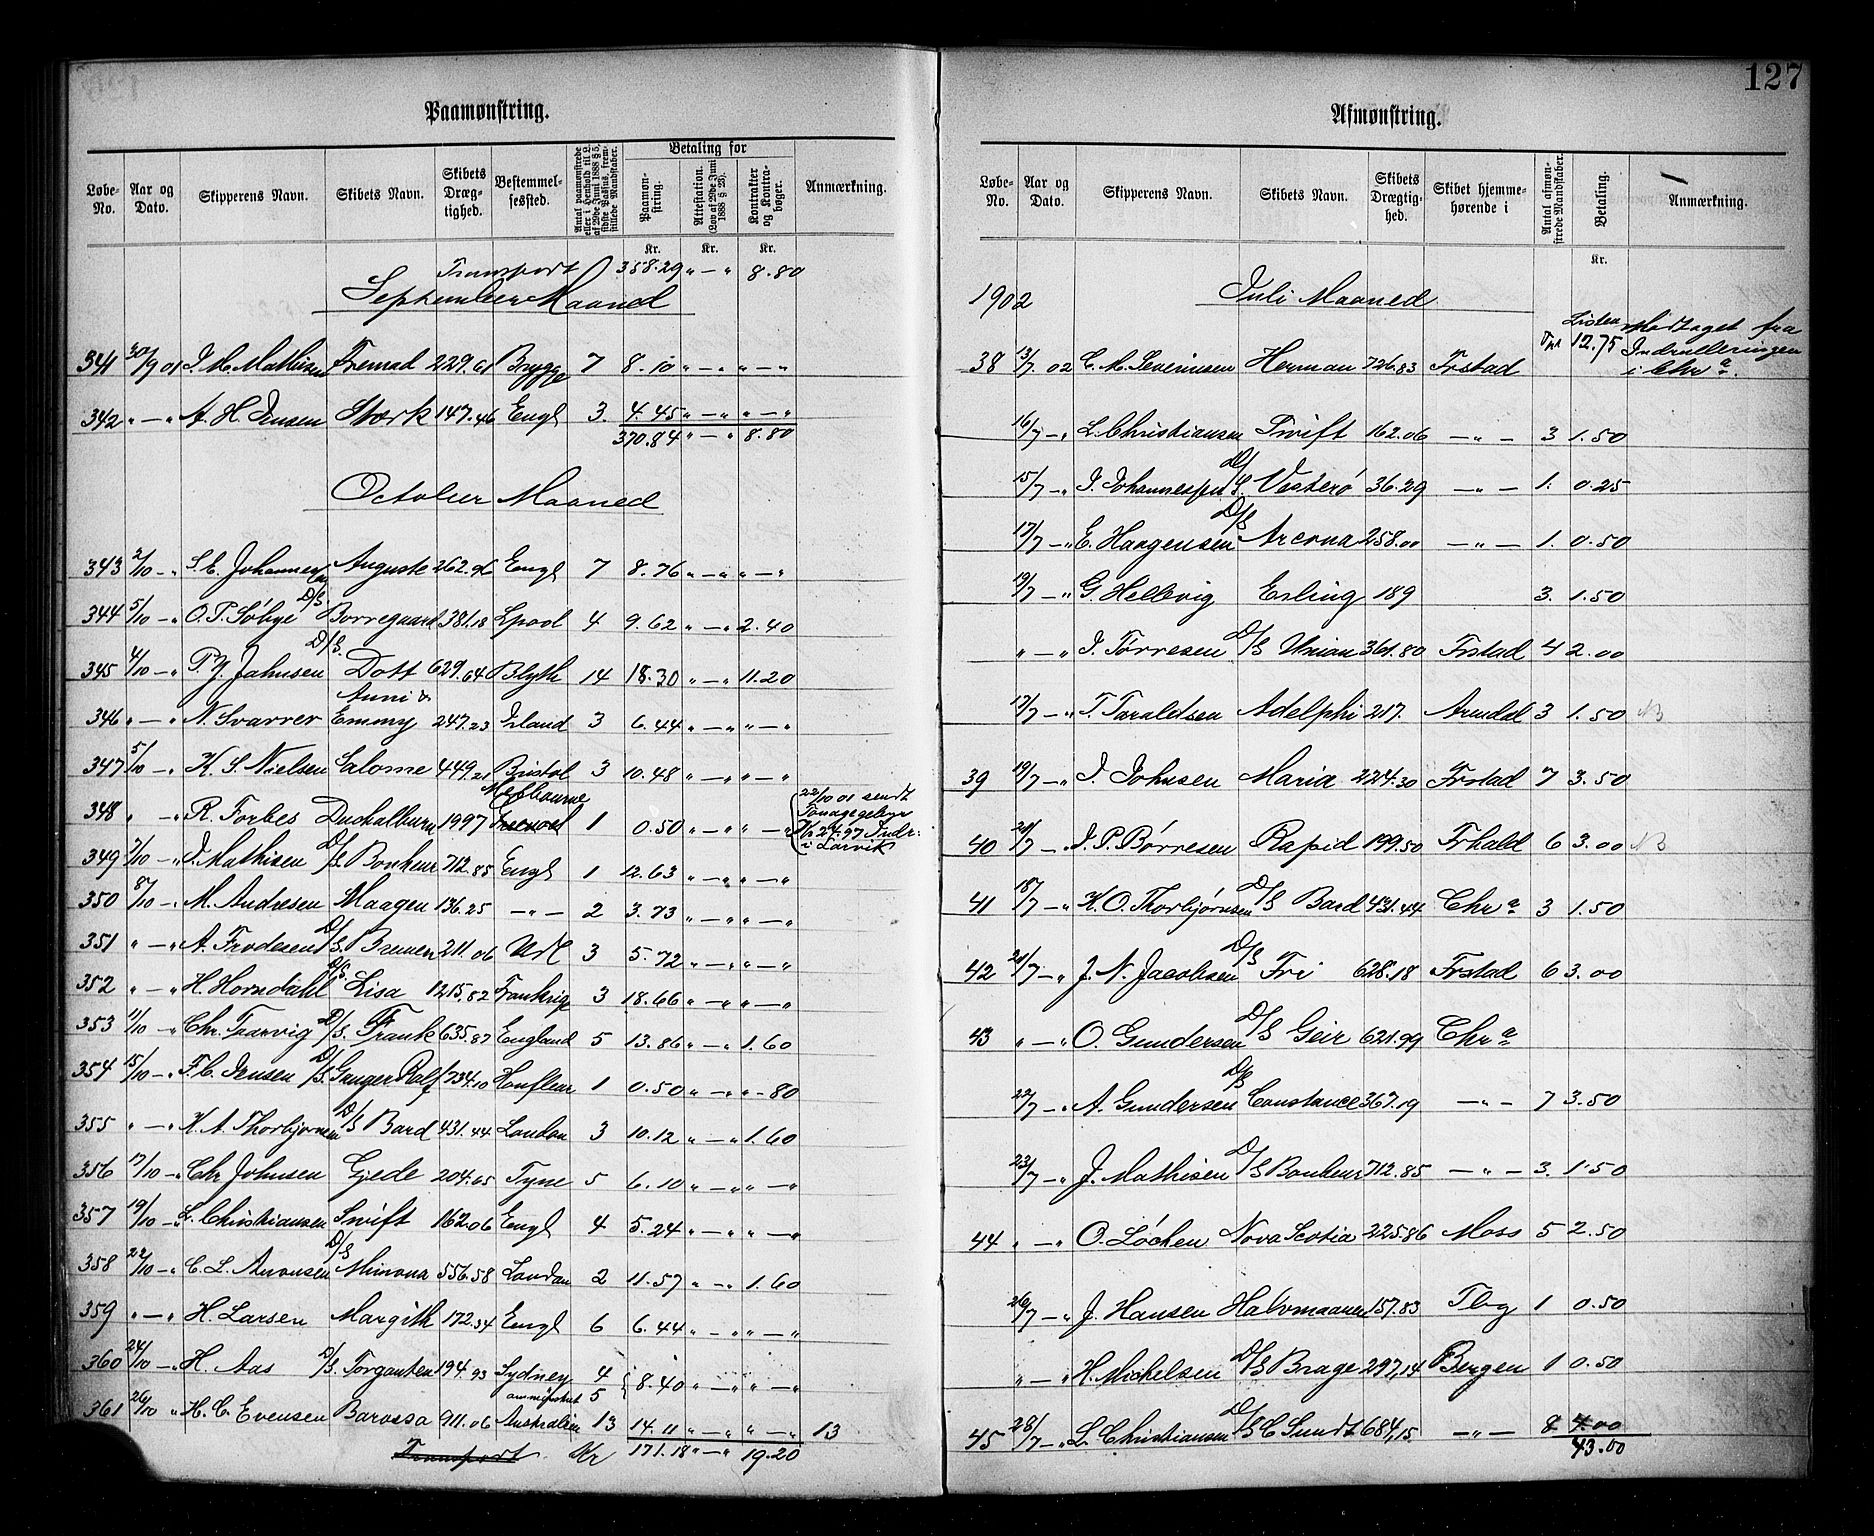 127
Paamønstring.
Løbe-No. Aar og Dato. Skipperens Navn. Skibets Navn. Skibets Dræg-tighed. Bestemmel-sessted. Antal paamønstrede eller i Henhold til L. af 29de Juni 1888 § 5, sidste Passus, frem-stillede Mandskaber. Betaling for Paamøn-string. Attestation. (Lov af 29de Juni 1888 § 28). Kontrakter og Kontra-bøger. Anmærkning.
Kr. Kr. Kr.
Transport 358.29 „ — „ 8.80
September Maaned
341 30/9 01 J. M. Mathisen Fremad 229.61 Brygge 7 8.10 „ — „ „ — „
342 „ — „ A. H. Jensen Stærk 147.46 Engl 3. 4.45 „ — „ „ — „
370.84 „ — „ 8.80
October Maaned
343 2/10 — „ S. C. Johannesen Auguste 262.96 Engl 7 8.76 „ — „ „ — „
344 5/10 — „ O. P. Søbye D/S. Borregaard 381.18 Lpool 4 9.62 „ — „ 2.40
345 4/10 — „ P. Y. Jahnsen D/S. Dott 629.64 Blyth 14 18.30 „ — „ 11.20
346 „ — „ N. Svarrer Anni & Emmy 247.23 Irland 3 6.44 „ — „ „ — „
347 5/10 — „ K. S. Nielsen Salome 449.21 Bristol 3 10.48 „ — „ „ — „
348 „ — „ R. Forbes Duchalburn 1997 Melbourne 1 0.50 „ — „ „ — „ 22/10 01 sendt Tonagegebyr 24.97 Indr: i Larvik
349 7/10 — „ J. Mathisen D/S Bonheur 712.85 Engl 1 12.63 „ — „ „ — „
350 8/10 — „ M. Andresen Maagen 136.25 — „ — 2 3.73 „ — „ „ — „
351 „ — „ A. Frodesen D/S. Bremen 211.06 Udl 3 5.72 „ — „ „ — „
352 „ — „ H. Horndahl D/S. Lisa 1215.82 Frankrige 3 18.66 „ — „ „ — „
353 11/10 — „ Chr. Taarvig D/S. Frank 635.87 England 5 13.86 „ — „ 1.60
354 15/10 — „ F. C. Jensen D/S. Ganger Rolf 734.10 Honfleur 1 0.50 „ — „ „ - 80
355 „ — „ K. A. Thorbjørnsen D/S Bard 431.44 London 3 10.12 „ — „ 1.60
356 17/10 — „ Chr Johnsen Gjede 204.65 Tyne 5 6.10 „ — „ „ — „
357 19/10 — „ L. Christiansen Swift 162.06 Engl 4 5.24 „ — „ „ — „
358 22/10 — „ C. L. Aronsen D/S Minona 556.58 London 2 11.57 „ — „ 1.60
359 „ — „ H. Larsen Margith 172.54 Engl 6 6.44 „ — „ „ — „
360 24/10 — „ H. Aas D/S. Torganten 194.93 Sydney 4 8.40 „ — „ „ — „
5
361 26/10 „ H. C. Evensen Barossa 911.06 Australien 13 14.11 „ — „ „ — „ 13
Transport Kr 171.18 „ — „ 19.20
Afmønstring.
Løbe-No. Aar og Dato. Skipperens Navn. Skibets Navn. Skibets Drægtig-hed. Skibet hjemme-hørende i Antal afmøn-strede Mandskaber. Betaling. Anmærkning.
Kr.
1902 Juli Maaned
38 13/7 02 C. M. Severinsen Herman 726.83 Frstad 12.75 Listen Modtaget fra Indrulleringen i Chr a.
16/7 — „ L. Christiansen Swift 162.06 — „ — 3 1.50
15/7 — „ J. Johannessen D/S. Vesterø 36.29 — „ — 1. 0.25
17/7 — „ E. Haagensen D/S Arcona 258.00 — „ — 1. 0.50
19/7 — „ G. Hellvig Erling 189 3. 1.50
„ — „ J. Torresen D/S Union 361.80 Frstad 4 2.00
17/7 — „ T. Taraldsen Adelphi 217. Arndal 3 1.50 NB
39 19/7 — „ J. Johnsen Maria 224.30 Frstad 7 3.50
40 20/7 — „ J. P. Børresen Rapid 199.50 Frhald 6 3.00 NB
41 18/7 — „ K. O. Thorbjørnsen D/S Bard 431.44 Chr a 3 1.50
42 21/7 — „ J. N. Jacobsen D/S Fri 628.18 Frstad 6 3.00
43 „ — „ O. Gundersen D/S Geir 621.99 Chr a
22/7 — „ A. Gundersen D/S Constance 367.19 — „ — 7 3.50
23/7 — „ J. Mathisen D/S Bonheur 712.85 — „ — 3. 1.50
44 „ — „ O. Løchen Nova Scotia 225.86 Moss 5 2.50
26/7 — „ J. Hansen Halvmaanen 157.83 Tbg 1 0.50
„ — „ H. Mickelsen D/S Brage 297.14 Bergen 1 0.50
45 28/7 — „ L. Christiansen D/S C Sundt 684.15 — „ — 8 4.00
43.00